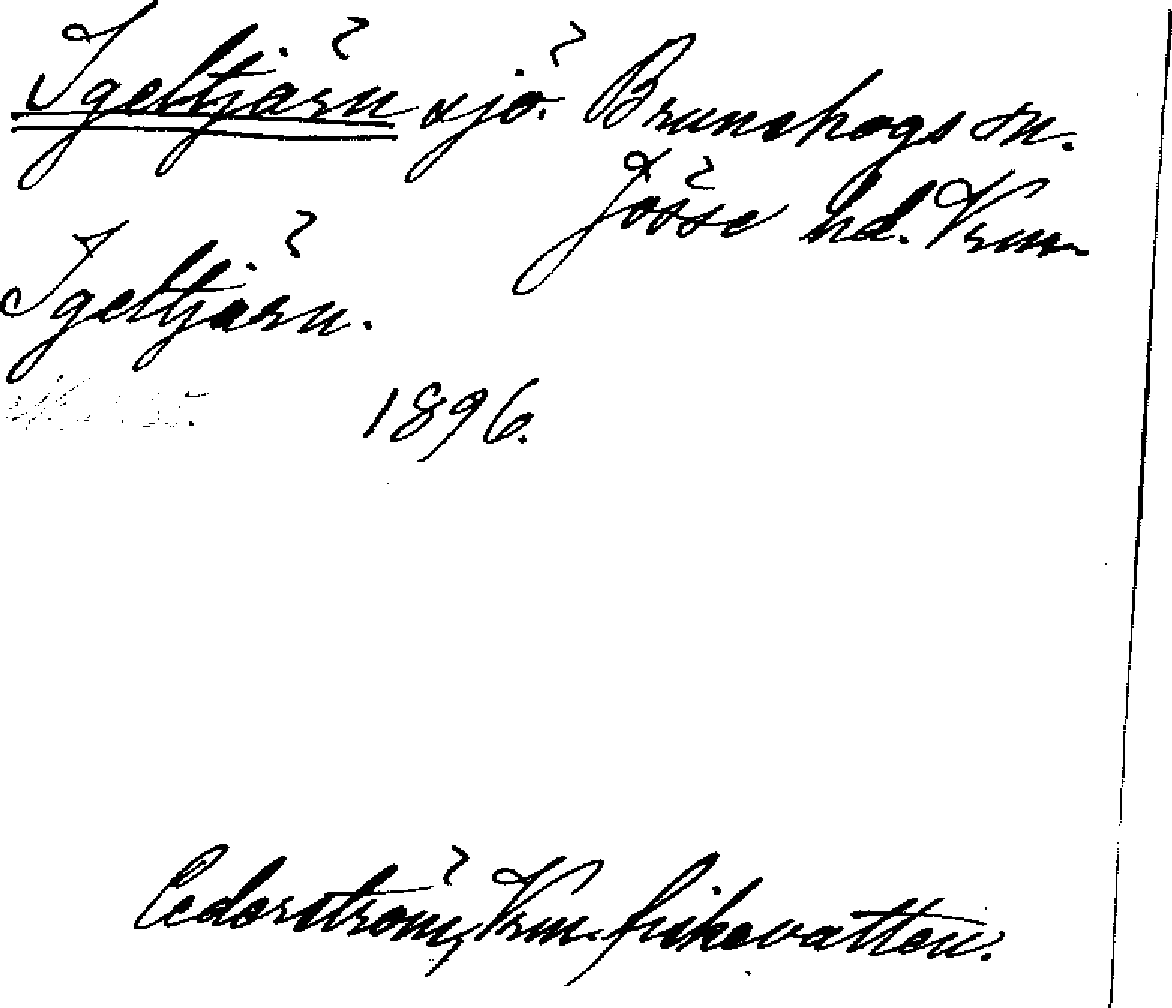 Igeltjärn sjö Brunskogs sn.
Jösse hd. Vrm.
Igeltjärn.
1896.
Cederström, Vrm. fiskevatten.